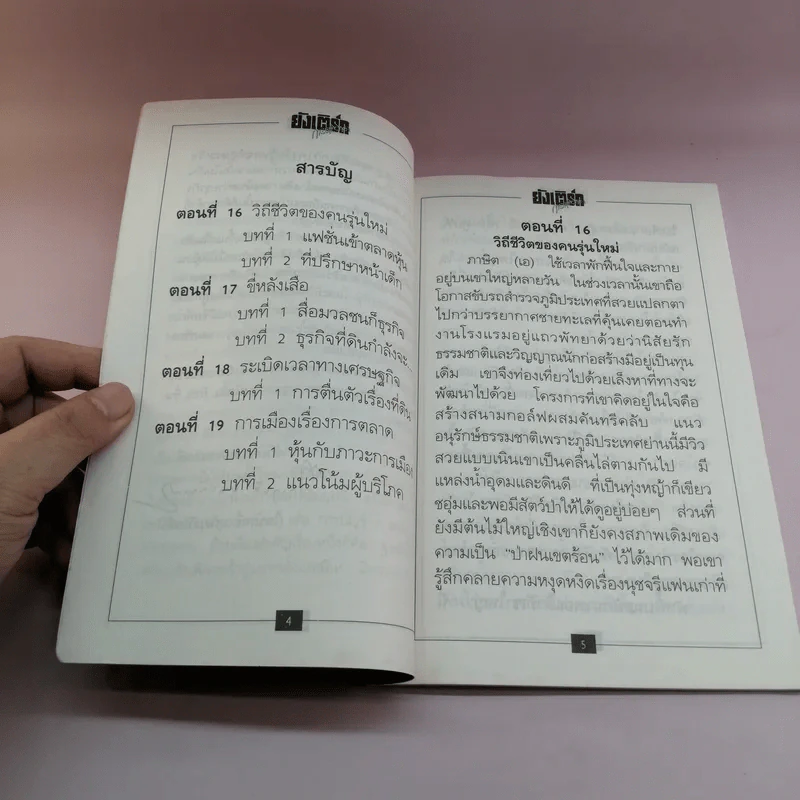 ยังเติร์ก
สารบัญ
ตอนที่ 16 วิถีชีวิตของคนรุ่นใหม่
บทที่ 1 แฟชั่นเข้าตลาดหุ้น
บทที่ 2 ที่ปรึกษาหน้าเด็ก
ตอนที่ 17 ขี่หลังเสือ
บทที่ 1 สื่อมวลชนก็ธุรกิจ
บทที่ 2 ธุรกิจที่ดินกำลังจะ
ตอนที่ 18 ระเบิดเวลาทางเศรษฐกิจ
บทที่ 1 การตื่นตัวเรื่องที่ดิน
ตอนที่ 19 การเมืองเรื่องการตลาด
บทที่ 1 หุ้นกับภาวะการเมือง
บทที่ 2 แนวโน้มผู้บริโภค
4
ยังเติร์ก
ตอนที่ 16
วิถีชีวิตของคนรุ่นใหม่
ภาษิต (เอ) ใช้เวลาพักฟื้นใจและกาย
อยู่บนเขาใหญ่หลายวัน ในช่วงเวลานั้นเขาถือ
โอกาสขับรถสำรวจภูมิประเทศที่สวยแปลกตา
ไปกว่าบรรยากาศชายทะเลที่คุ้นเคยตอนทำ
งานโรงแรมอยู่แถวพัทยาด้วยว่านิสัยรัก
ธรรมชาติและวิญญาณนักก่อสร้างมีอยู่เป็นทุน
เดิม เขาจึงท่องเที่ยวไปด้วยเล็งหาที่ทางจะ
พัฒนาไปด้วย โครงการที่เขาคิดอยู่ในใจคือ
สร้างสนามกอล์ฟผสมคันทรีคลับ แนว
อนุรักษ์ธรรมชาติเพราะภูมิประเทศย่านนี้มีวิว
สวยแบบเนินเขาเป็นคลื่นไล่ตามกันไป มี
แหล่งน้ำอุดมและดินดี ที่เป็นทุ่งหญ้าก็เขียว
ชอุ่มและพอมีสัตว์ป่าให้ได้ดูอยู่บ่อยๆ ส่วนที่
ยังมีต้นไม้ใหญ่เชิงเขาก็ยังคงสภาพเดิมของ
ความเป็น "ป่าฝนเขตร้อน" ไว้ได้มาก พอเขา
รู้สึกคลายความหงุดหงิดเรื่องนุชจรีแฟนเก่าที่
5